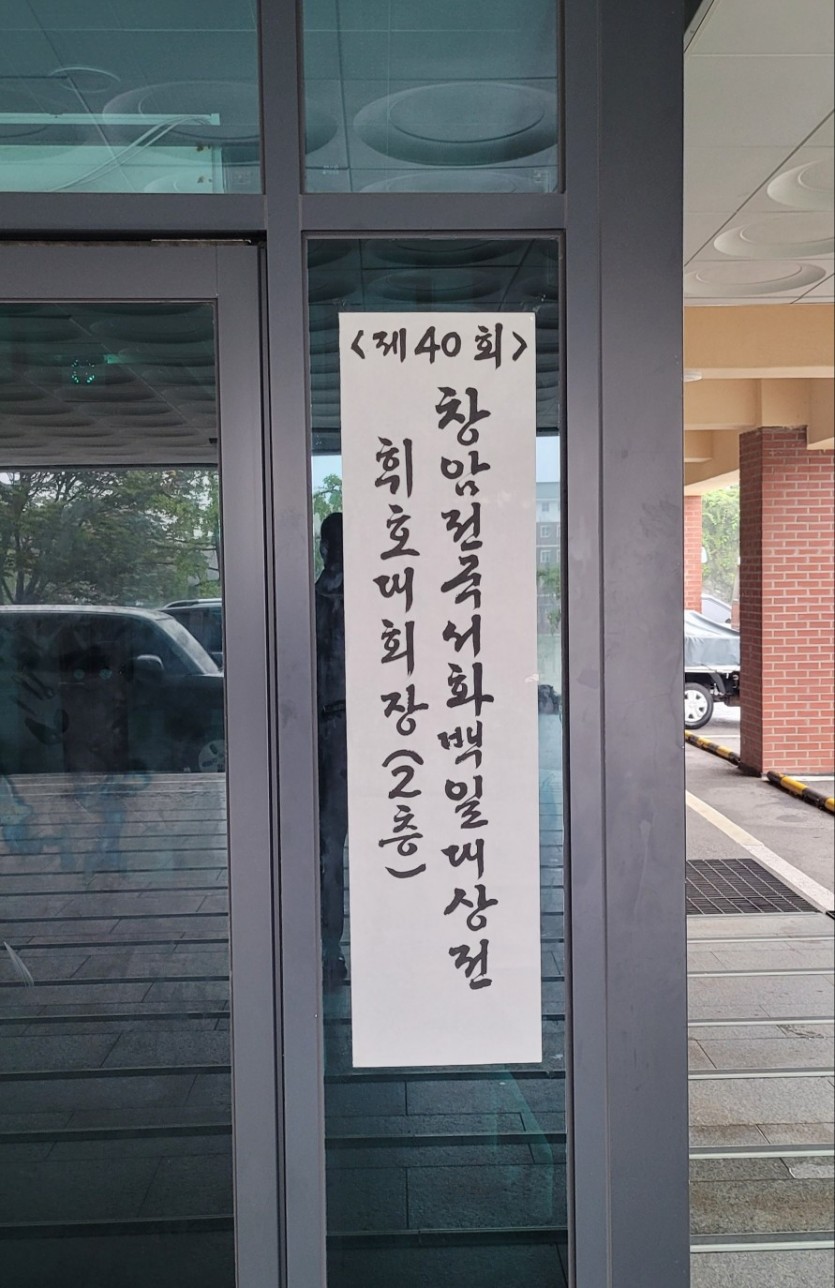 <제40회>
창암전국서화백일대상전
휘호대회장(2층)